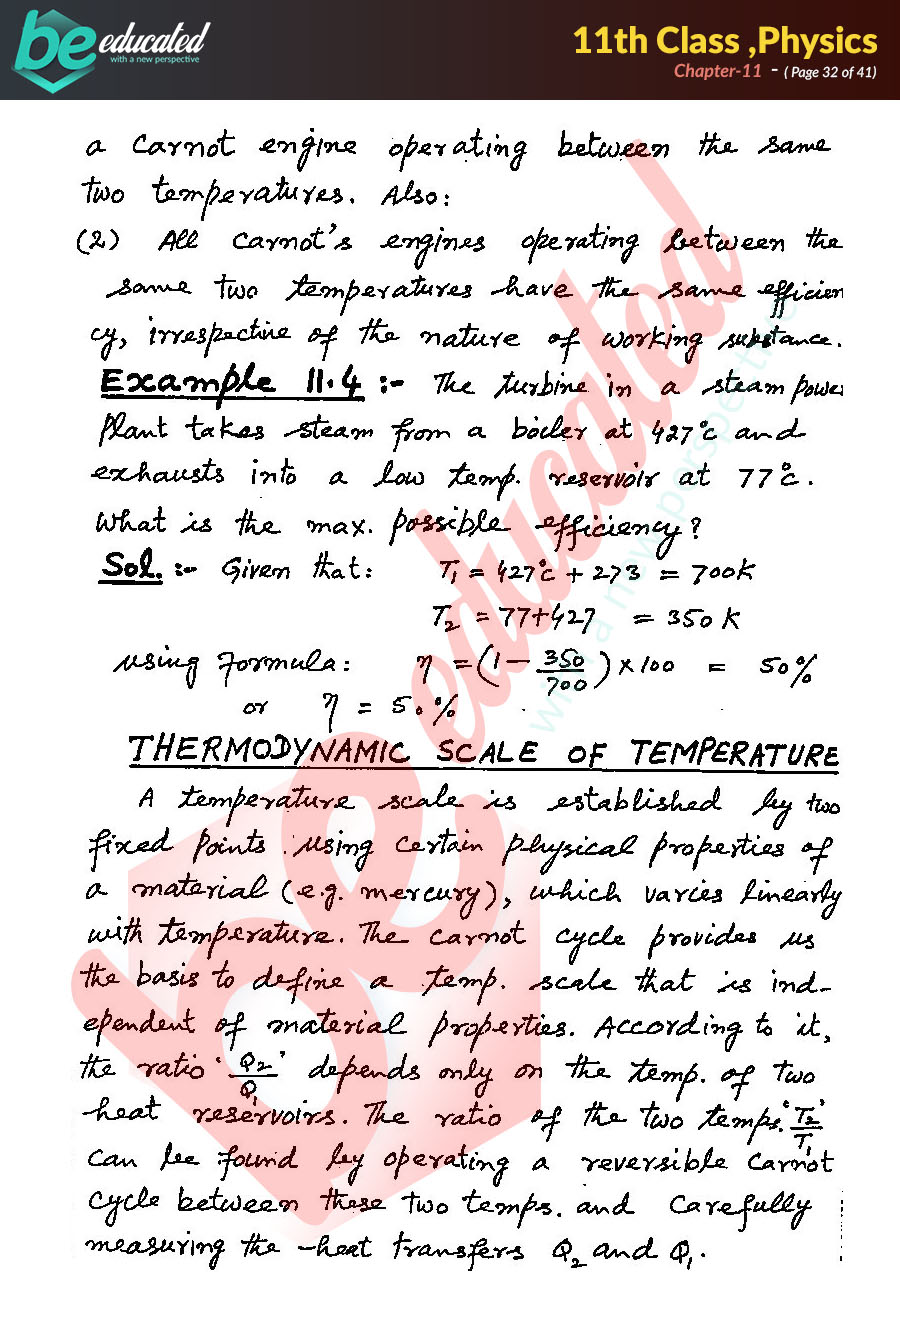 be educated
with a new perspective
11th Class ,Physics
Chapter-11 - ( Page 32 of 41)
a Carnot engine operating between the same
two temperatures. Also:
(2) All Carnot's engines operating between the
same two temperatures have the same efficien
cy, irrespective of the nature of working substance.
Example 11.4 :- The turbine in a steam power
Plant takes steam from a boiler at 427°c and
exhausts into a low temp. reservoir at 77°c.
What is the max. possible efficiency?
Sol. :- Given that: T₁ = 427°c + 273 = 700K
T₂ = 77+427 = 350 K
using Formula: η = (1 - 350/700) × 100 = 50%
or η = 50%
THERMODYNAMIC SCALE OF TEMPERATURE
A temperature scale is established by two
fixed points using certain physical properties of
a material (e.g. mercury), which varies linearly
with temperature. The carnot cycle provides us
the basis to define a temp. scale that is ind-
ependent of material properties. According to it,
the ratio 'Q₂/Q₁' depends only on the temp. of two
heat reservoirs. The ratio of the two temps. 'T₂/T₁'
can be found by operating a reversible Carnot
cycle between these two temps. and carefully
measuring the heat transfers Q₂ and Q₁.
be educated
with a new perspective